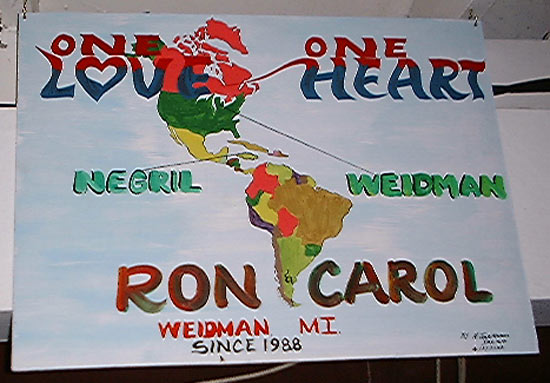 ONE ONE
LOVE HEART
NEGRIL WEIDMAN
RON CAROL
WEIDMAN MI.
SINCE 1988